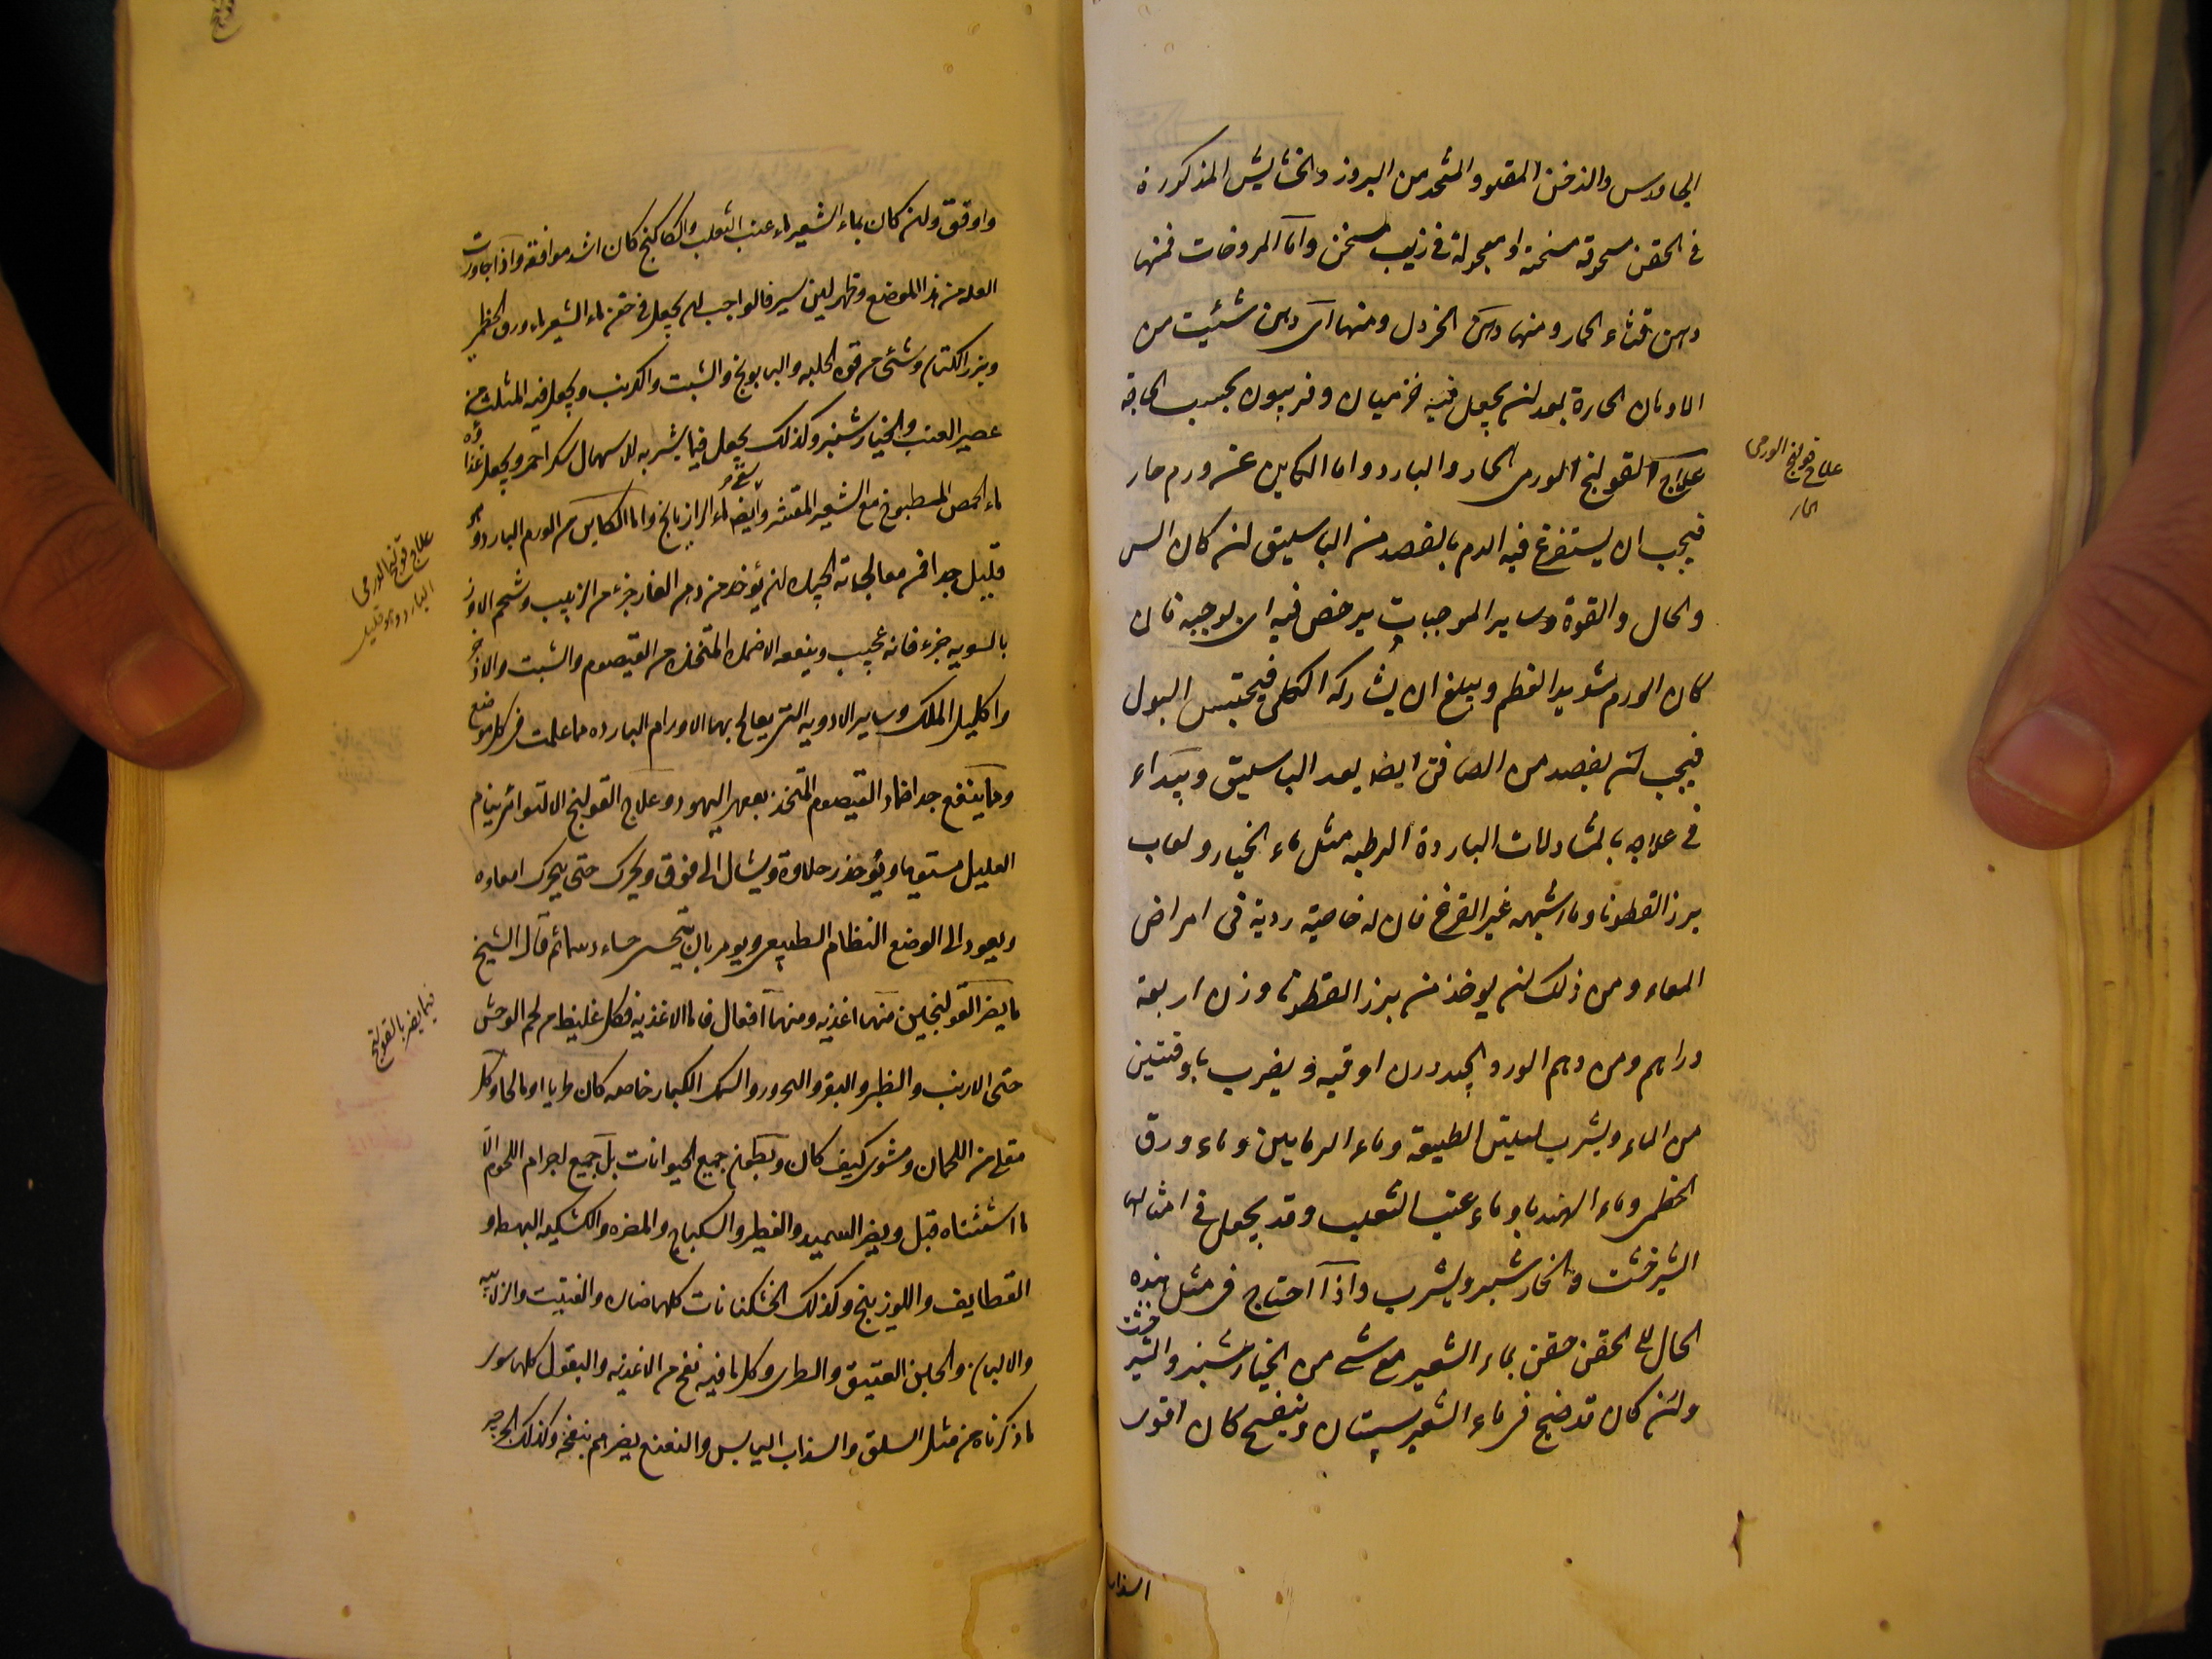 الجاورس والدخن المقلو والمتخذ من البزور والحشايش المذكورة
في الحقن مسحوقة مسخنة او معجولة في زيت مسخن واما المروخات فمنها
دهن قثاء الحمار ومنها دهن الخردل ومنها اى دهن شئيت من
الادهان الحارة بعد ان يجعل فيه خزميان وفربيون بحسب الحاجة
علاج القولنج الورمى الحار والبارد واما الكاين عن ورم حار
فيجب ان يستفرغ فيه الدم بالفصد من الباسليق ان كان السن
والحال والقوة وساير الموجبات يرخص فيه او يوجبه فان
كان الورم شديد العظم ويبلغ ان يشاركه الكلى فيحتبس البول
فيجب ان يفصد من الصافن ايضا بعد الباسليق ويبداء
في علاجه بالمتناولات الباردة الرطبه مثل ماء الخيار ولعاب
بزر القطونا وما اشبهه غير القرع فان له خاصية ردية فى امراض
المعاء ومن ذلك ان يوخذ من بزر القطونا وزن اربعة
دراهم ومن دهن الورد الجيد وزن اوقيه ويضرب باوقيتين
من الماء ويشرب لتليين الطبيعة وماء الرمانين وماء ورق
الخطمى وماء الهندبا وماء عنب الثعلب وقد يجعل في امثالها
الشيرخشت والخيارشنبر ويشرب واذا احتاج فى مثل هذه
الحال الى الحقن حقن بماء الشعير مع شى من الخيارشنبر والشيرخشت
وان كان قد طبخ فى ماء الشعير سپستان وبنفسج كان اقوى
علاج قولنج الورمى
الحار
السذاب
واوفق وان كان بماء الشعير ماء عنب الثعلب والكاكنج كان اشد موافقة واذا جاوزت
العله من هذا الموضع وظهر لين يسير فالواجب ان يجعل في حقن ماء الشعير ماء ورق الخطمى
وبزر الكتان وشئ من قوة الحلبه والبابونج والشبت والكرنب ويجعل فيه المثلث من
عصير العنب والخيارشنبر وكذلك يجعل فيما يشربه للاسهال سكر احمر ويجعل غذاؤه
ماء الحمص المطبوخ مع الشعير المقشر وايضا ماء الرازيانج واما الكاين من الورم البارد وهو
قليل جدا فمن معالجاته الجيده ان يؤخذ من دهن الغار جزء من الزيت وشحم الاوز
بالسويه جزء فانه عجيب وينفعه الاضمده المتخذه من القيصوم والشبت والاذخر
واكليل الملك وساير الادويه التى يعالج بها الاورام البارده مما علمت فى كل موضع
ومما ينفع جدا ضماد القيصوم المتخذ بقفر اليهود وعلاج القولنج الالتوائى ينام
العليل مستويا ويؤخذ رجلاه ويشال الى فوق ويحرك حتى يتحرك امعاوه
ويعود الى الوضع النظام الطبيعى ويومر بان يتحسى حساء دسما ثم قال الشيخ
ما يضر القولنجين منها اغذيه ومنها افعال فاما الاغذيه فكل غليظ من لحم الوحش
حتى الارنب والظبى والبقر والجزور والسمك الكبار خاصه كان طريا او مالحا وكل
مقلى من اللحمان ومشوى كيف كان وبطون جميع الحيوانات بل جميع اجرام اللحوم الا
ما استثناه قبل ويضر السميد والفطير والسكباج والمضره والكشكيه البهطه و
القطايف واللوزينج وكذلك الخشكنانات كلها ضاره والفتيت والزلابيه
والالبان والجبن العتيق والطرى وكل ما فيه نفخ من الاغذيه والبقول كلها سوى
ما ذكرناه من مثل السلق والسذاب اليابس والنعنع يضرهم بنفخه وكذلك الجرجير
علاج قولنج الورمى
البارد وهو قليل
فيما يضر بالقولنج